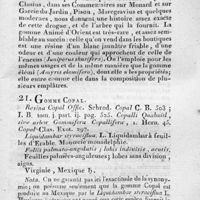 Clusius, dans ses Commentaires sur Monard et sur
Garcie du Jardin, Pison, Marcgravius et quelques
modernes, nous donnent une histoire assez exacte
de cette drogue, et de l'arbre qui la fournit. La
gomme Animé d'Orient est une résine très-odorante,
d'une odeur et d'une couleur qui approchent de celle de
l'encens (Juniperus thurifera). On l'emploie pour les
mêmes usages et de la même manière que la gomme
élémi (Amyris elemifera), dont elle a les propriétés,
et elle entre comme elle dans la composition des
emplâtres.
21. Gomme Copal.
Resina Copal Offic. Schrod. Copal C. B. 503;
I. B. tom. j. part. ij. pag. 325. Copalli Quahuitl,
sive arbor Gummifera Copallifera, 1. Hern. 45.
Copal Clus. Exot. 297.
Liquidambar styraciflua. L. Liquidambar à feuilles
d'Erable. Monoecie monadelphie.
Foliis palmato-angulatis; lobis indivisis, acutis,
Feuilles palmées-anguleuses; lobes sans division,
aigus.
Virginie, Mexique ♄.
Nota. On ne garantit pas ici l'exactitude de la synonymie;
on présume seulement que la gomme Copal est
produite au Mexique par le Liquidambar styraciflua L.